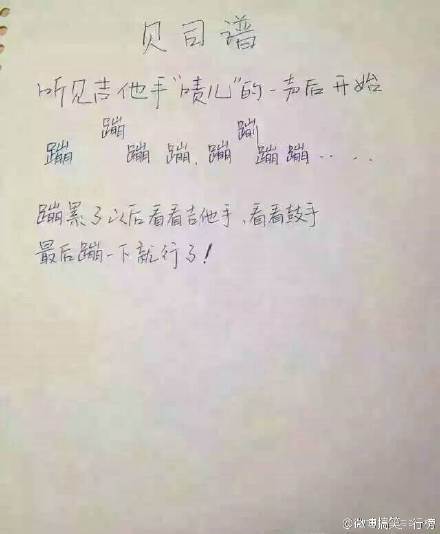 贝司谱
听见吉他手"啧儿"的一声后开始
蹦 蹦
蹦 蹦 蹦.蹦 蹦蹦.. . .
蹦累了以后看看吉他手、看看鼓手
最后蹦一下就行了!
@微博搞笑排行榜